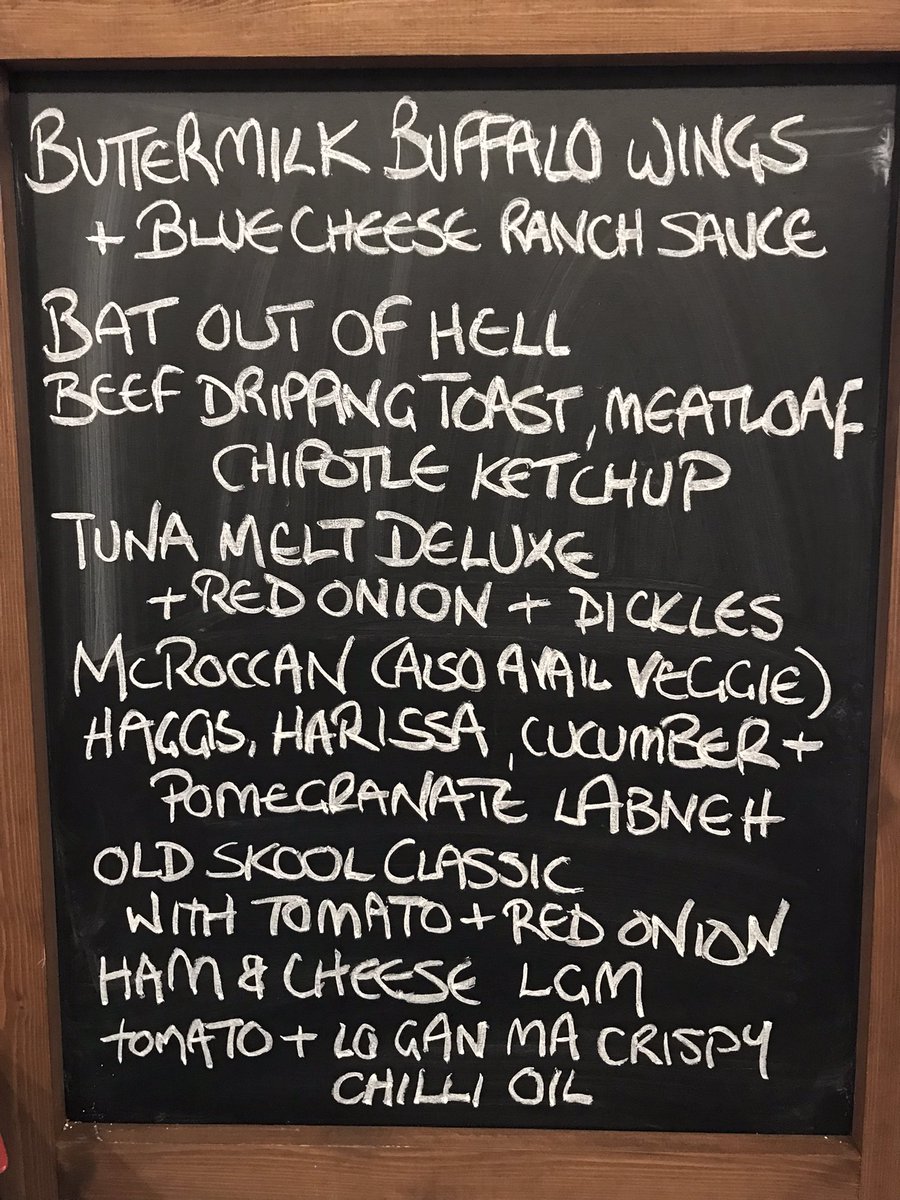 BUTTERMILK BUFFALO WINGS
+ BLUE CHEESE RANCH SAUCE
BAT OUT OF HELL
BEEF DRIPPING TOAST, MEATLOAF
CHIPOTLE KETCHUP
TUNA MELT DELUXE
+ RED ONION + DICKLES
MCROCCAN (ALSO AVAIL VEGGIE)
HAGGIS, HARISSA, CUCUMBER +
POMEGRANATE LABNEH
OLD SKOOL CLASSIC
WITH TOMATO + RED ONION
HAM & CHEESE LGM
TOMATO + LO GAN MA CRISPY
CHILLI OIL